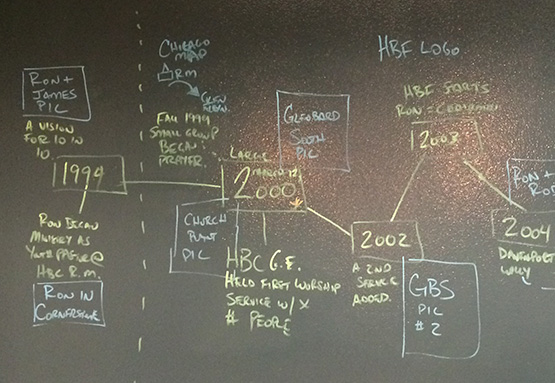 RON +
JAMES
PIC
A VISION
FOR 10 IN
10.
1994
RON BEGAN
MINISTRY AS
YOUTH PASTOR @
HBC R.M.
RON IN
CORNERSTONE
CHICAGO
MAP
RM
GLEN
ELLYN
FALL 1999
SMALL GROUP
BEGAN
PRAYER.
LARGE
MARCH 12,
2000
CHURCH
PLANT
PIC
HBC G.E.
HELD FIRST WORSHIP
SERVICE W/ X
# PEOPLE
GLENBARD
SOUTH
PIC
2002
A 2ND
SERVICE
ADDED.
HBF LOGO
HBF STARTS
RON = CHAIRMAN
2003
GBS
PIC
# 2
RON +
2004
DAVENPORT